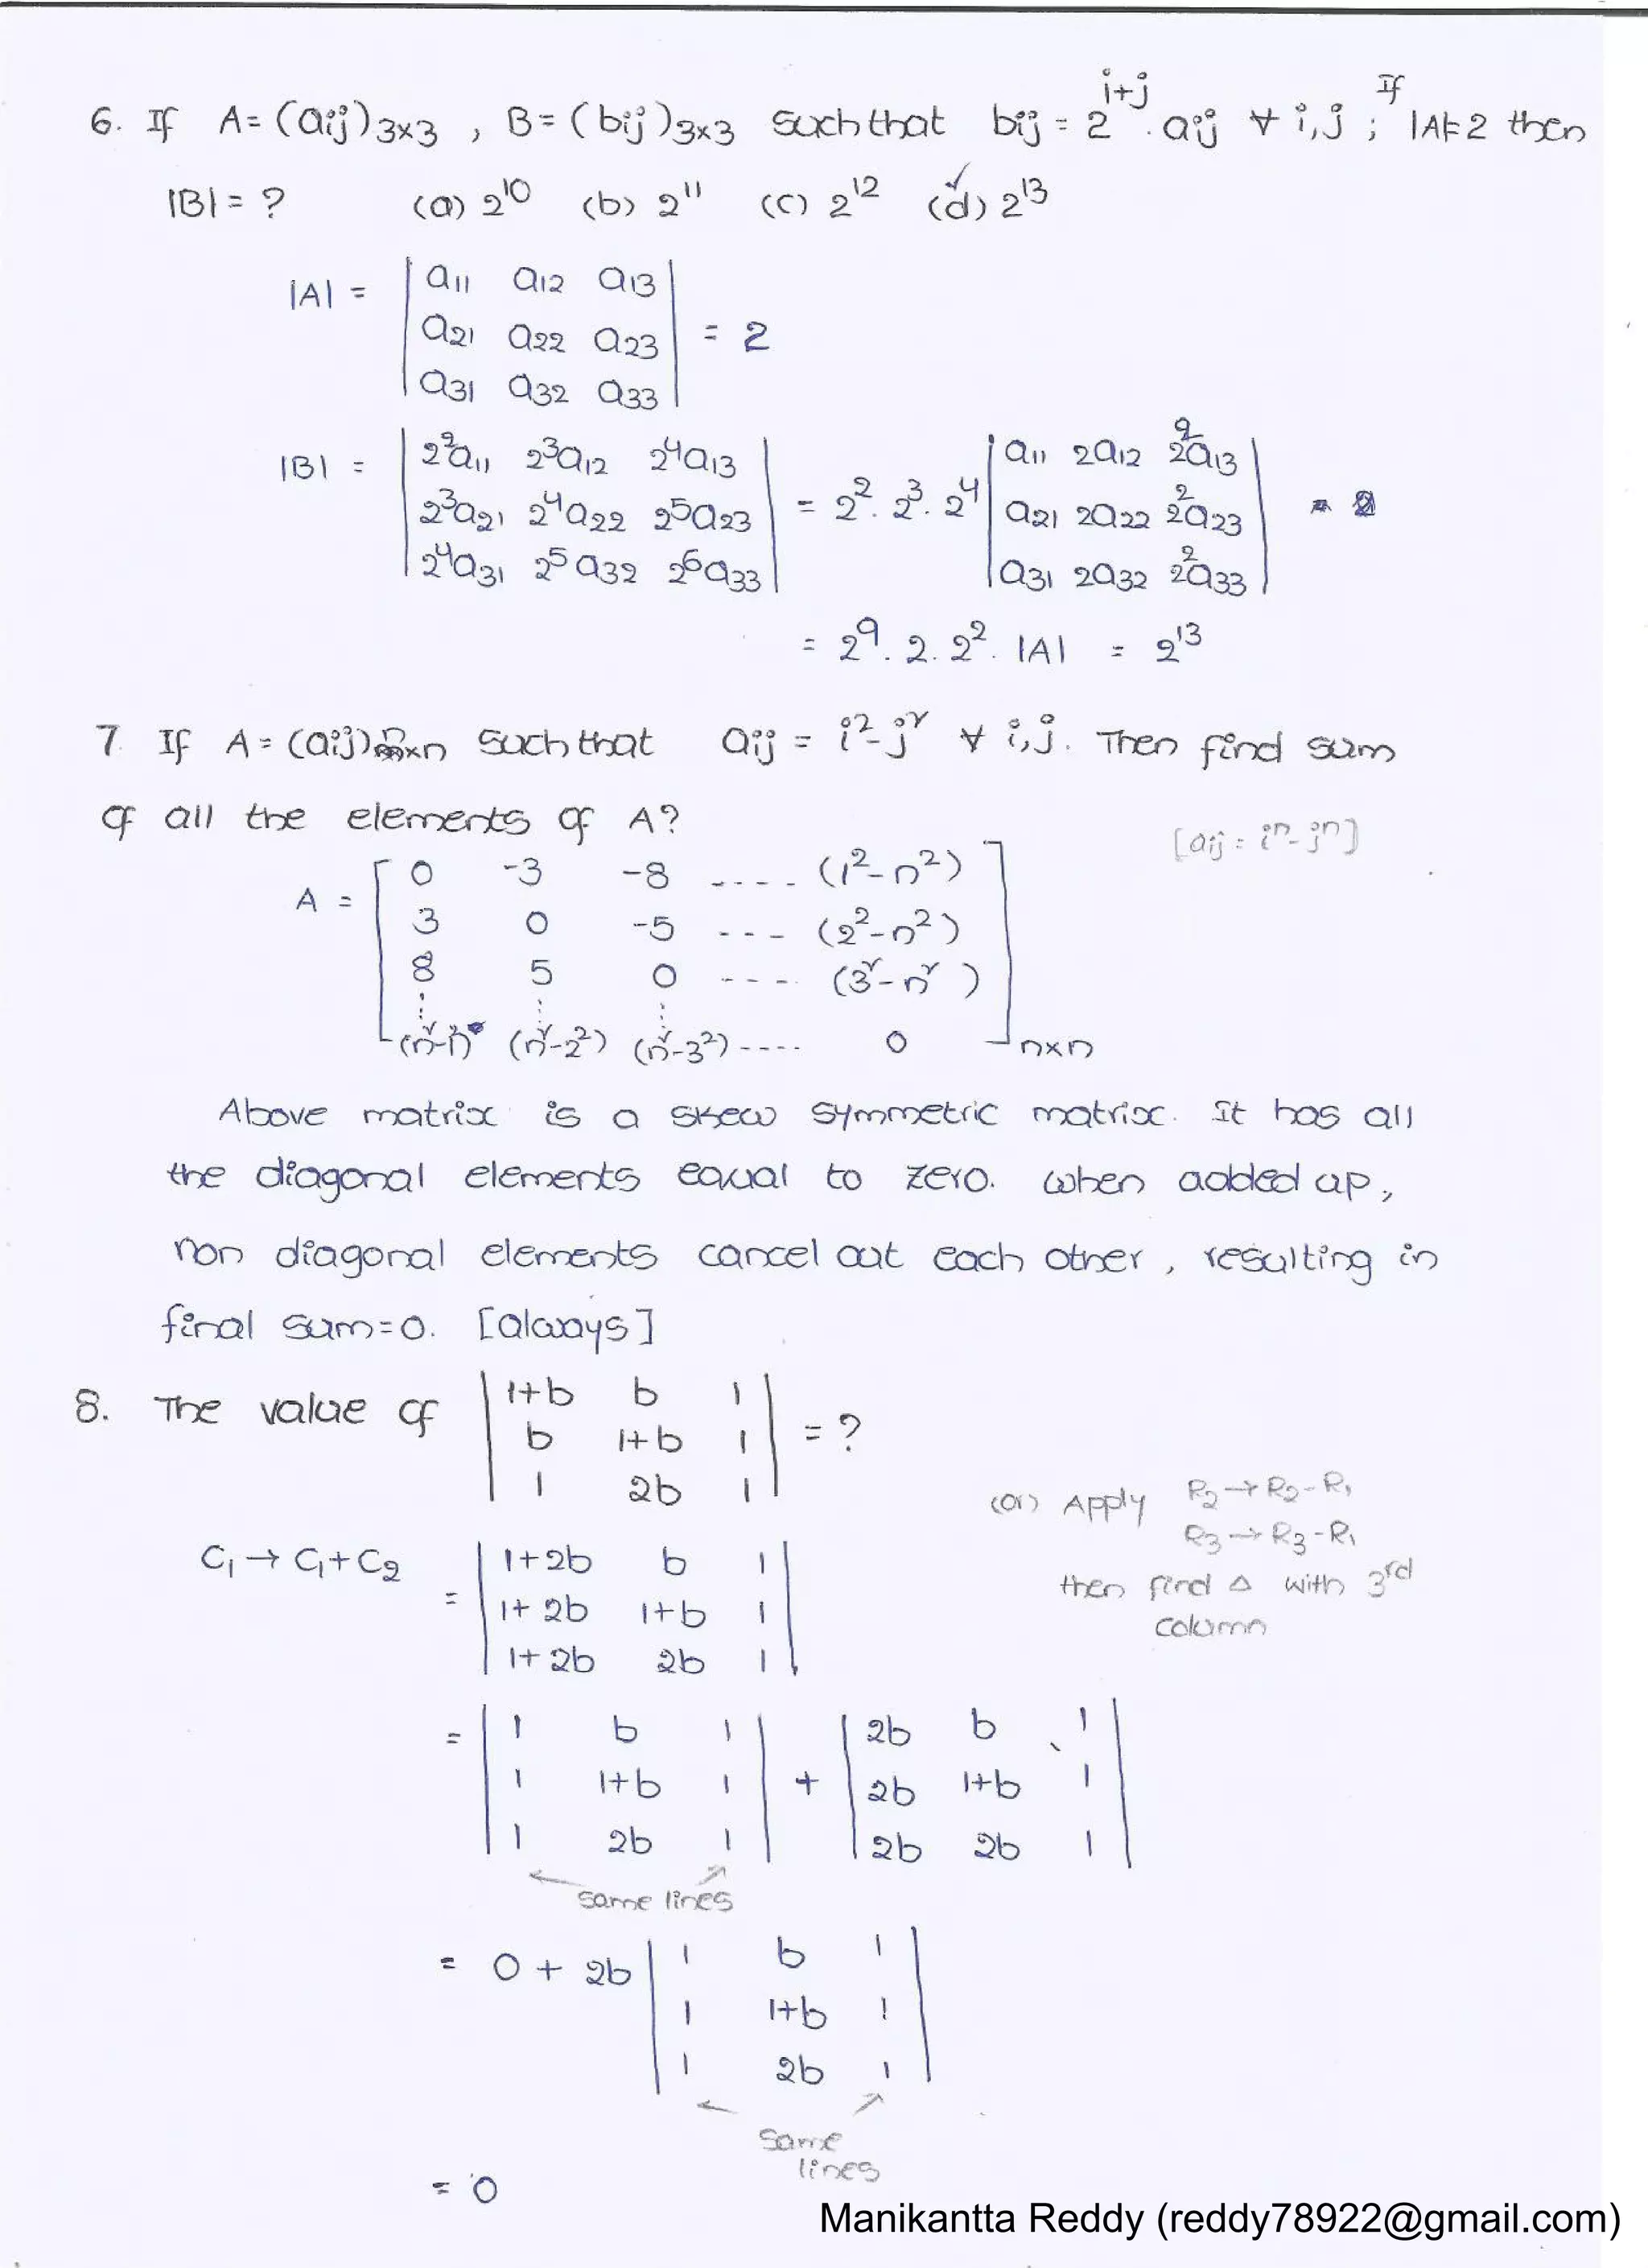 6. If A = (aij)3×3 , B = (bij)3×3 such that bij = 2^(i+j) . aij ∀ i,j ; If |A|=2 then
|B| = ? (a) 2^10 (b) 2^11 (c) 2^12 (d) 2^13 ✓
|A| = | a11 a12 a13 |
| a21 a22 a23 | = 2
| a31 a32 a33 |
|B| = | 2^2a11 2^3a12 2^4a13 | | a11 2a12 2^2a13 |
| 2^3a21 2^4a22 2^5a23 | = 2^2. 2^3. 2^4 | a21 2a22 2^2a23 |
| 2^4a31 2^5a32 2^6a33 | | a31 2a32 2^2a33 |
= 2^9. 2. 2^2. |A| = 2^13
7. If A = (aij)n×n such that aij = i^2 - j^2 ∀ i,j. Then find sum
of all the elements of A?
[aij = i^n - j^n]
A = [ 0 -3 -8 .... (1^2-n^2)
3 0 -5 --- (2^2-n^2)
8 5 0 .... (3^2-n^2)
⋮ ⋮ ⋮
(n^2-1^2) (n^2-2^2) (n^2-3^2) .... 0 ]n×n
Above matrix is a skew symmetric matrix. It has all
the diagonal elements equal to zero. When added up,
non diagonal elements cancel out each other, resulting in
final sum=0. [always]
8. The value of | 1+b b 1 |
| b 1+b 1 | = ?
| 1 2b 1 |
(or) Apply R2→R2-R1
R3→R3-R1
then find Δ with 3rd
column
C1→C1+C2 = | 1+2b b 1 |
| 1+2b 1+b 1 |
| 1+2b 2b 1 |
= | 1 b 1 | | 2b b 1 |
| 1 1+b 1 | + | 2b 1+b 1 |
| 1 2b 1 | | 2b 2b 1 |
same lines
= 0 + 2b | 1 b 1 |
| 1 1+b 1 |
| 1 2b 1 |
same
lines
= 0
Manikantta Reddy (reddy78922@gmail.com)